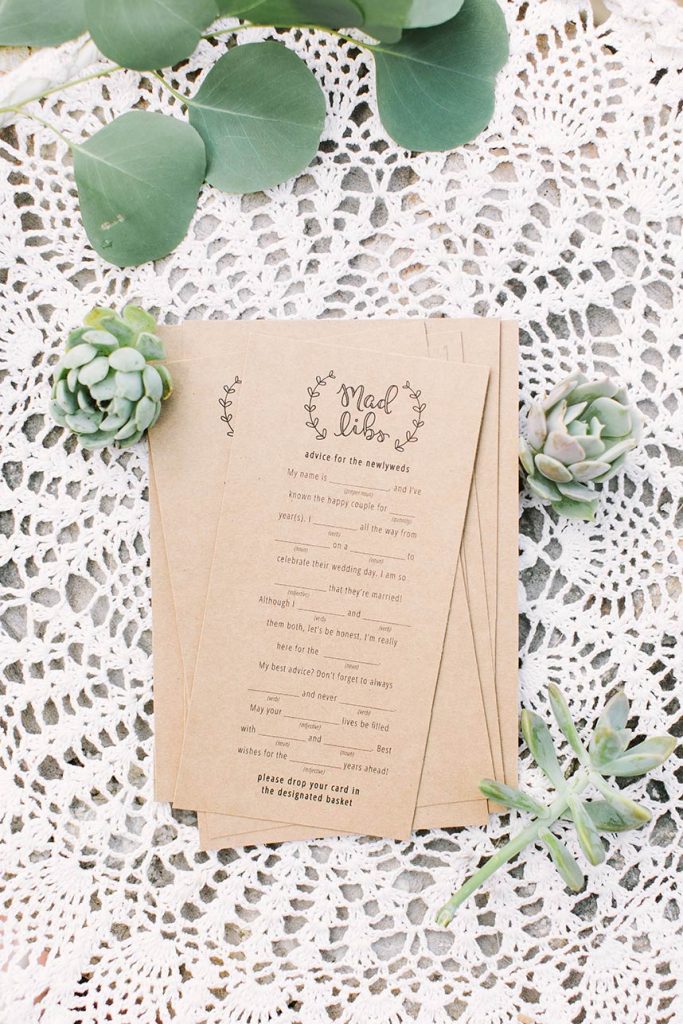 Mad
libs
advice for the newlyweds
My name is ____________ and I've
(proper noun)
known the happy couple for _____
(quantity)
year(s). I _________ all the way from
(verb)
____________ on a ____________ to
(noun) (noun)
celebrate their wedding day. I am so
____________ that they're married!
(adjective)
Although I __________ and __________
(verb) (verb)
them both, let's be honest, I'm really
here for the ______________.
(noun)
My best advice? Don't forget to always
____________ and never ____________.
(verb) (verb)
May your ____________ lives be filled
(adjective)
with __________ and __________. Best
(noun) (noun)
wishes for the __________ years ahead!
(adjective)
please drop your card in
the designated basket